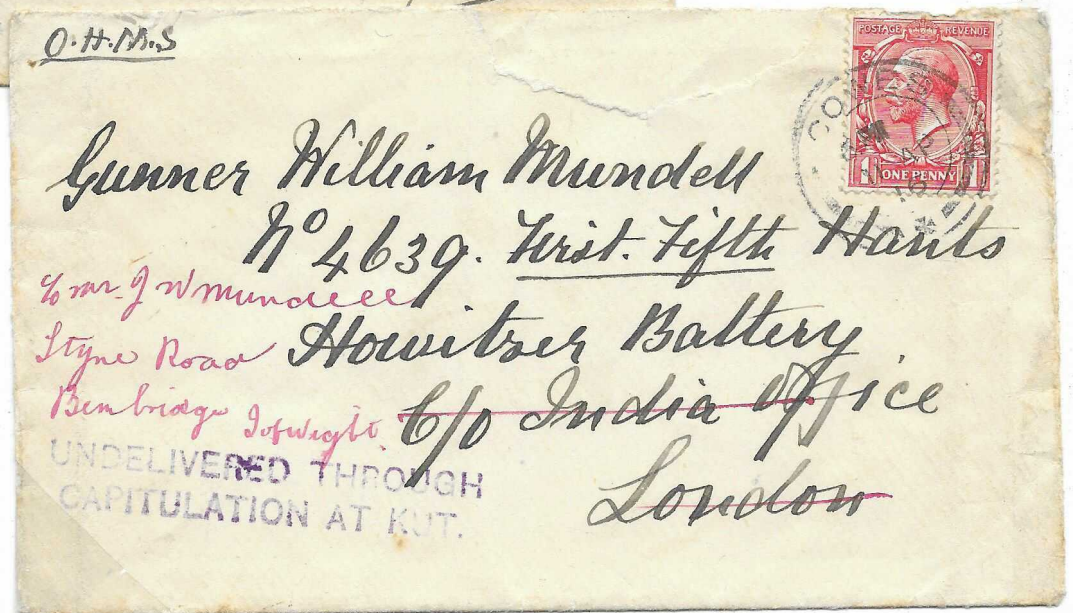 O.H.M.S
POSTAGE REVENUE
1 ONE PENNY 1
COWES
AP
16
Gunner William Mundell
No 4639. First. Fifth Hants
Howitzer Battery
C/o India Office
London
c/o Mr. J W Mundell
Styne Road
Bembridge I of Wight.
UNDELIVERED THROUGH
CAPITULATION AT KUT.